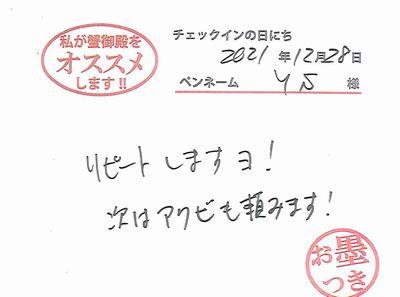 私が蟹御殿を
オススメ
します!!
チェックインの日にち
2021年12月28日
ペンネーム YS 様
リピートしますヨ!
次はアワビも頼みます!
お墨
つき